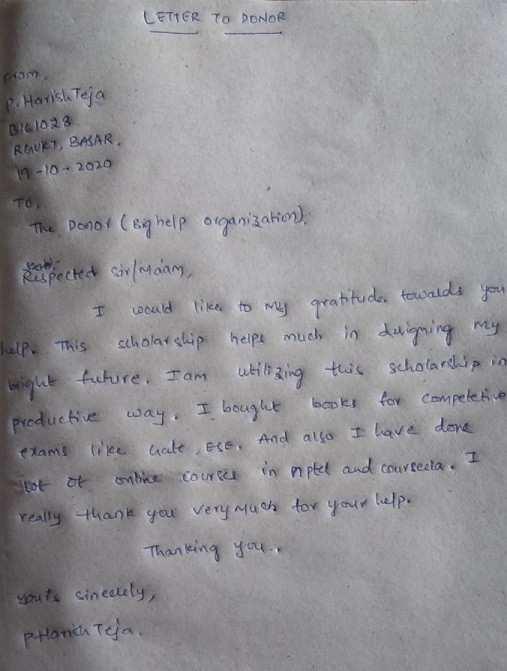 LETTER TO DONOR
From,
P. Harish Teja
B161028
RGUKT, BASAR.
19-10-2020
To,
The Donor (Big help organization).
Respected Sir/Ma'am,
I would like to my gratitude towards you
help. This scholarship helps much in designing my
bright future. I am utilizing this scholarship in
productive way. I bought books for competetive
exams like Gate, ESE. And also I have done
lot of online courses in nptel and coursera. I
really thank you very much for your help.
Thanking you..
yours sincerely,
P. Harish Teja.